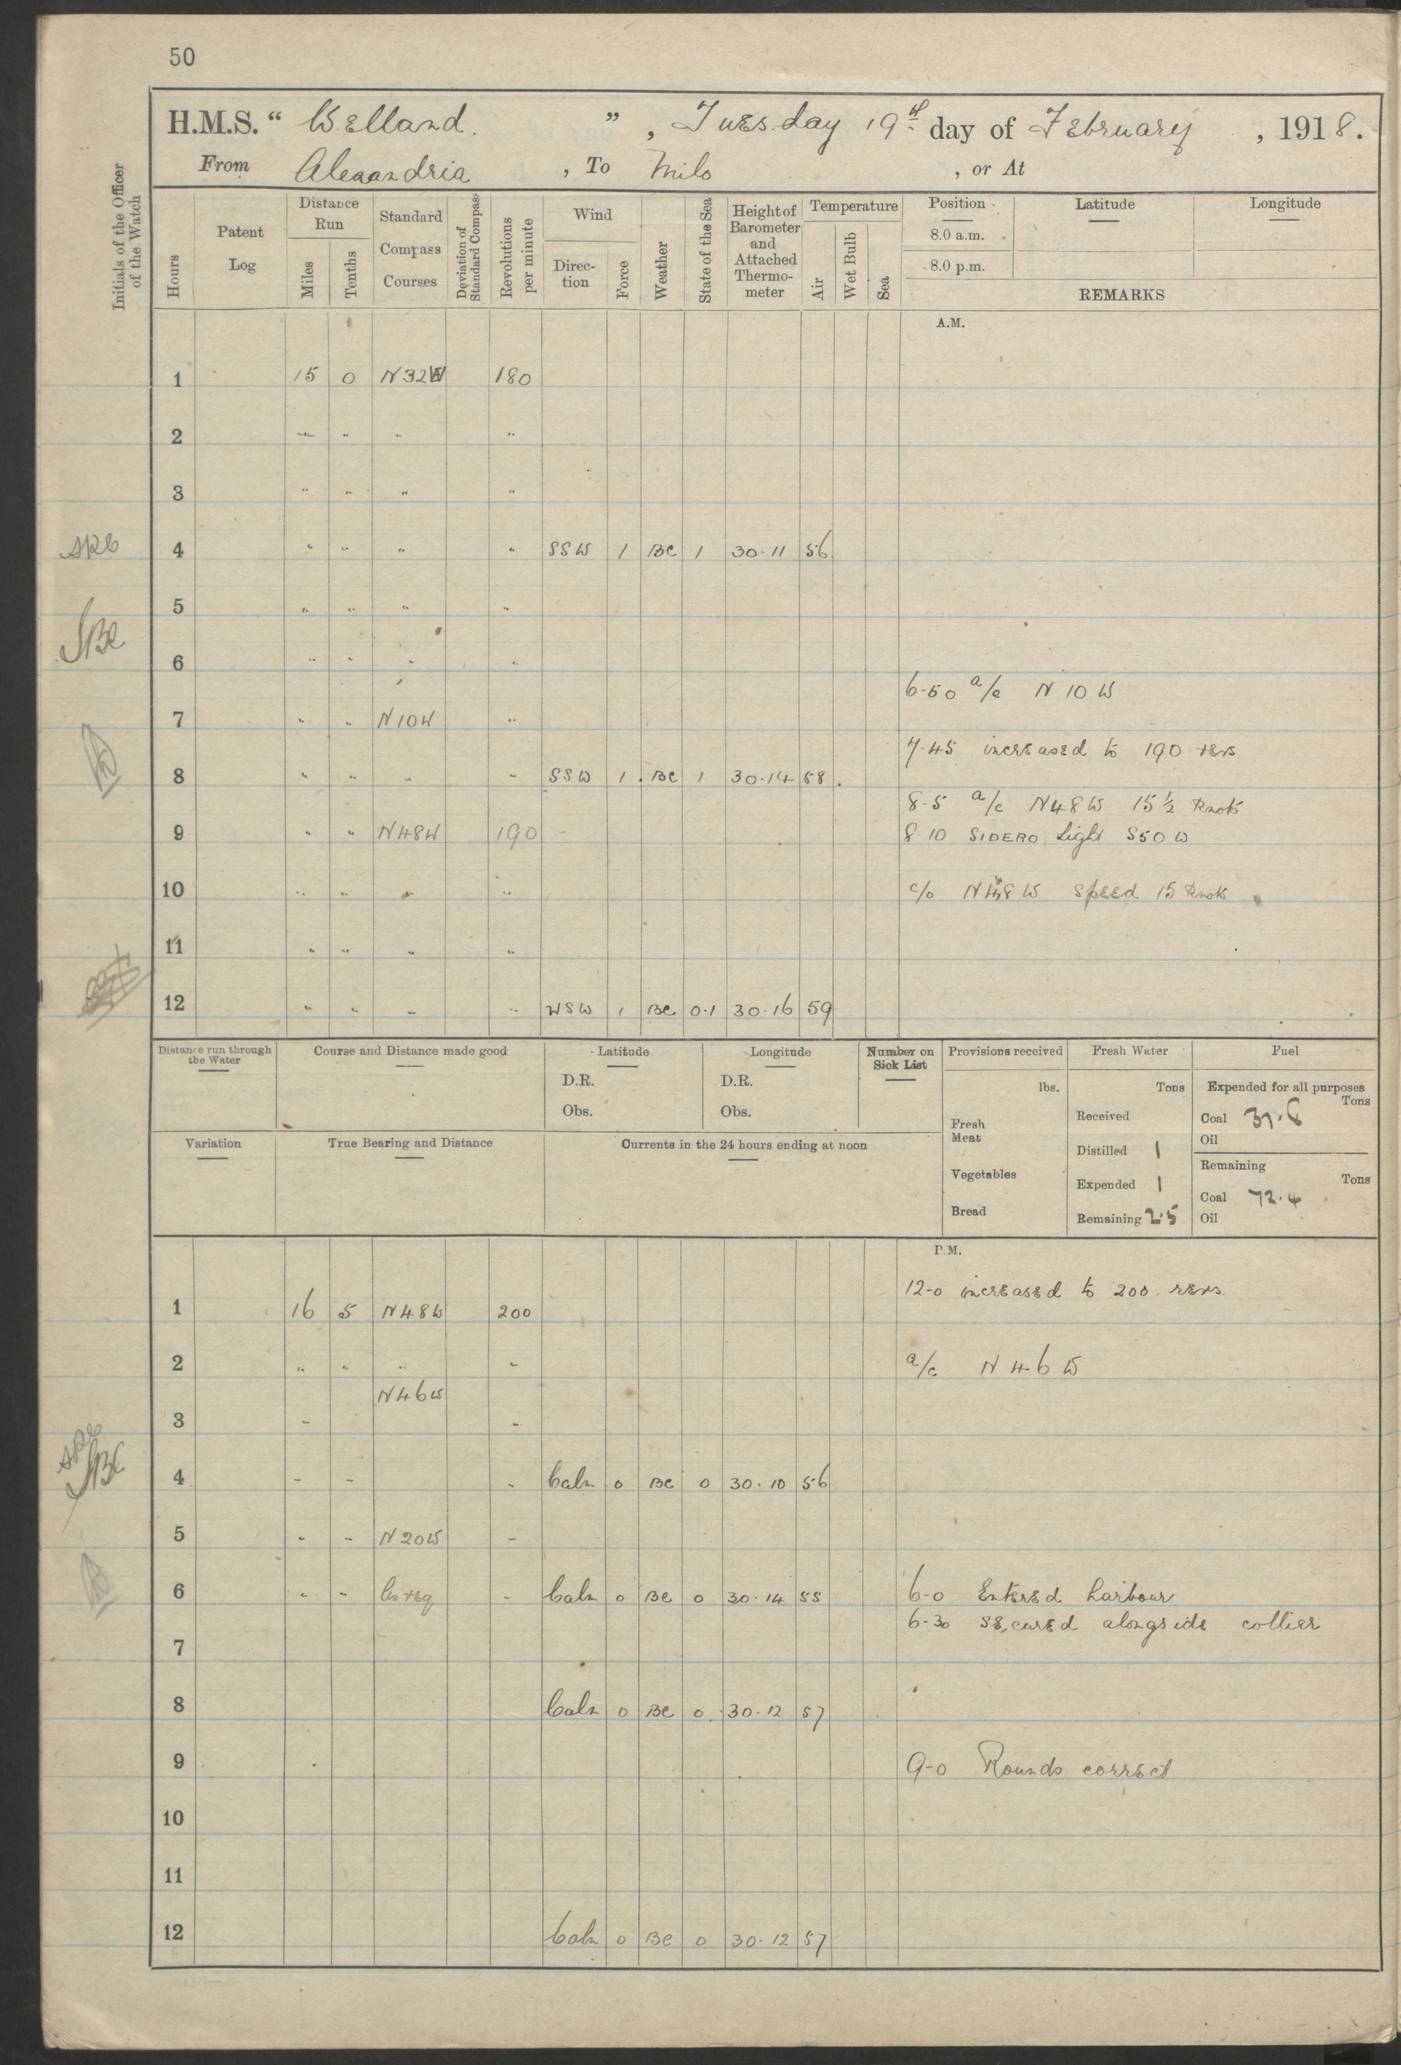 50
H.M.S. “ Welland. ”, Tuesday 19th day of February , 1918.
From Alexandria , To Milo , or At
Initials of the Officer of the Watch
Hours
Patent Log
Distance Run
Miles
Tenths
Standard Compass Courses
Deviation of Standard Compass
Revolutions per minute
Wind
Direction
Force
Weather
State of the Sea
Height of Barometer and Attached Thermometer
Temperature
Air
Wet Bulb
Sea
Position
8.0 a.m.
8.0 p.m.
Latitude
Longitude
REMARKS
A.M.
1 15 0 N32W 180
2 " " " "
3 " " " "
4 " " " " SSW 1 BC 1 30·11 56
5 " " " "
6 " " " "
6-50 a/c N 10 W
7 " " N10W "
7·45 increased to 190 revs
8 " " " " SSW 1 BC 1 30·14 58
8-5 a/c N48W 15½ knots
9 " " N48W 190
8·10 SIDERO Light S50W
10 " " " "
c/o N48W speed 15 knots
11 " " " "
12 " " " " WSW 1 BC 0·1 30·16 59
Distance run through the Water
Course and Distance made good
Latitude
D.R.
Obs.
Longitude
D.R.
Obs.
Number on Sick List
Provisions received
lbs.
Fresh Meat
Vegetables
Bread
Fresh Water
Tons
Received
Distilled 1
Expended 1
Remaining 2·5
Fuel
Expended for all purposes
Tons
Coal 37·6
Oil
Remaining
Tons
Coal 72·4
Oil
Variation
True Bearing and Distance
Currents in the 24 hours ending at noon
P.M.
12-0 increased to 200 revs
1 16 5 N48W 200
2 " " " "
a/c N46W
N46W
3 " "
4 " " " Calm 0 BC 0 30·10 56
5 " " N20W "
6 " " Co req " Calm 0 BC 0 30·14 55
6-0 Entered harbour
6-30 Secured alongside collier
7
8 Calm 0 BC 0 30·12 57
9
9-0 Rounds correct
10
11
12 Calm 0 BC 0 30·12 57